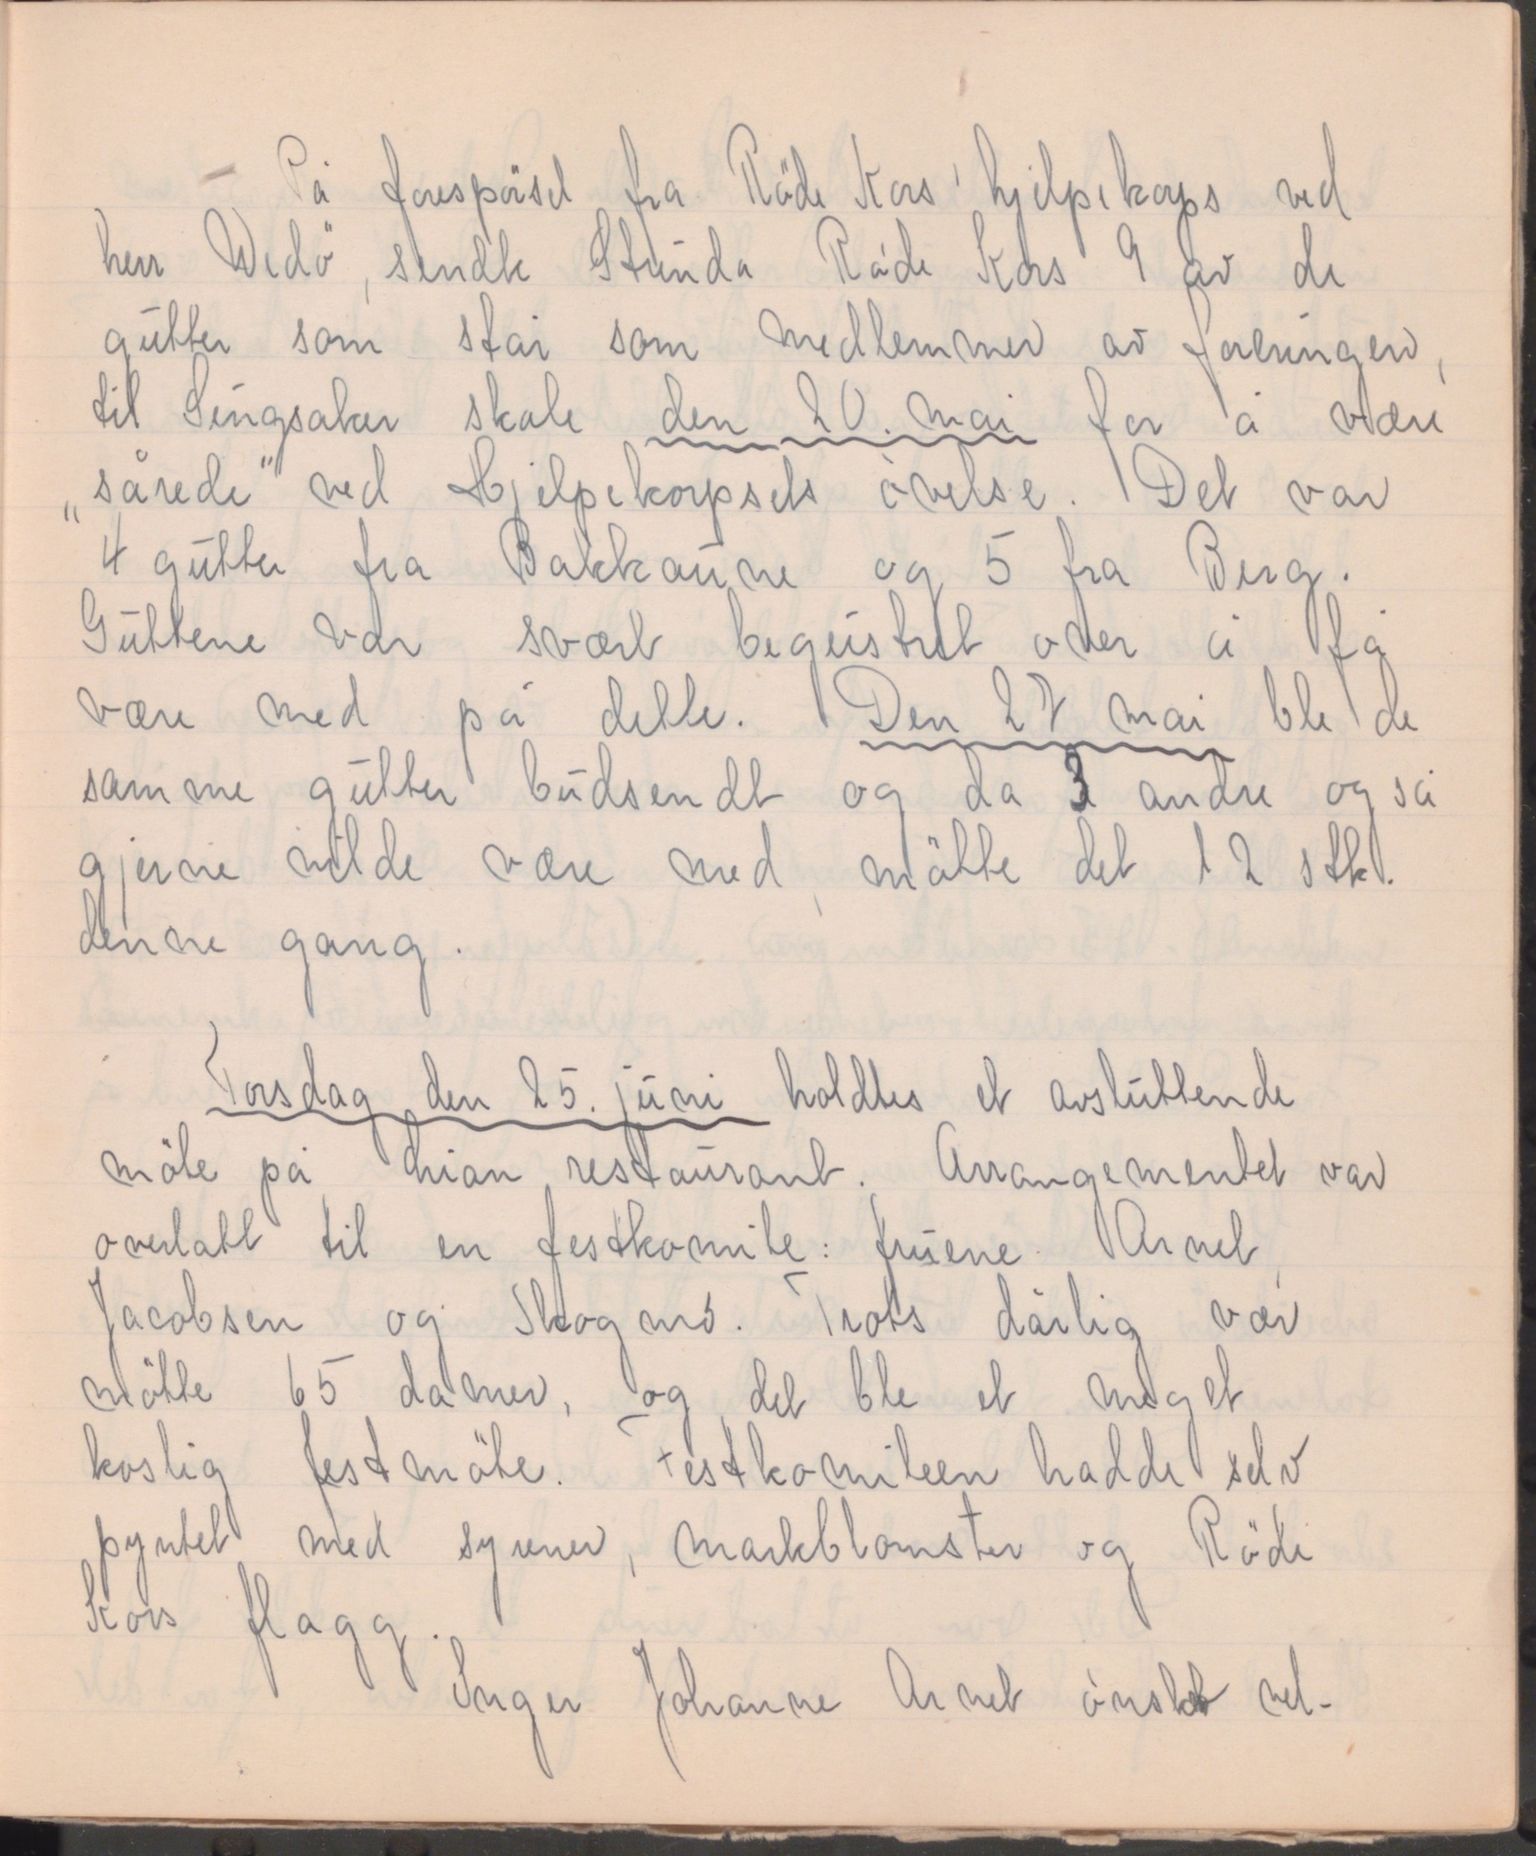 På forespørsel fra Röde Kors' hjelpekorps ved
herr Wedö, sendte Strinda Röde Kors 9 av de
gutter som står som medlemmer av foreningen,
til Singsaker skole den 20. mai for å være
„sårede" ved Hjelpekorpsets övelse. Det var
4 gutter fra Bakkaune og 5 fra Berg.
Guttene var svært begeistret over å få
være med på dette. Den 27 mai ble de
samme gutter budsendt og da 3 andre også
gjerne vilde være med, mötte det 12 stk.
denne gang.
Torsdag den 25. juni holdtes et avsluttende
möte på Lian restaurant. Arrangementet var
overlatt til en festkomite: fruene Arnet,
Jacobsen og Skogmo. Trots dårlig vær
mötte 65 damer, og det ble et meget
koslig festmöte. Festkomiteen hadde selv
pyntet med syrener, markblomster og Röde
Kors flagg.
Inger Johanne Arnet önsket vel-